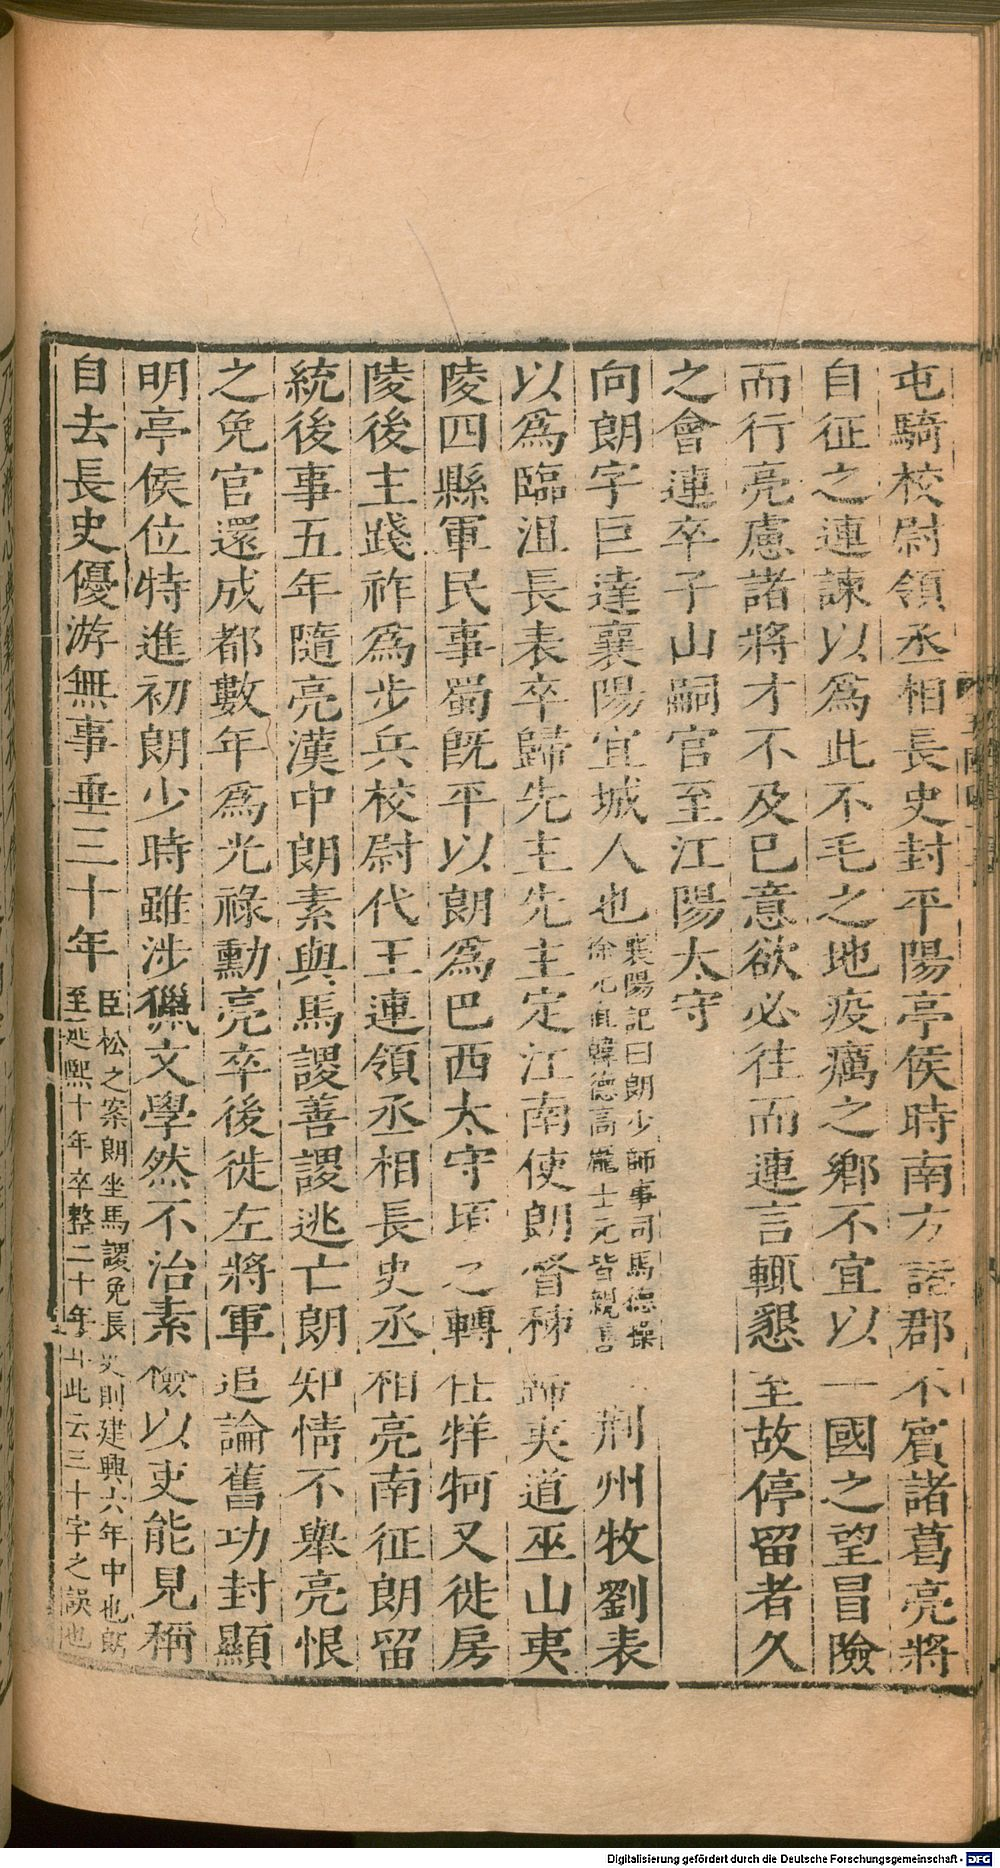 屯騎校尉領丞相長史封平陽亭侯時南方諸郡不賓諸葛亮將
自征之連諫以爲此不毛之地疫癘之鄉不宜以一國之望冒險
而行亮慮諸將才不及已意欲必往而連言輒懇至故停留者久
之會連卒子山嗣官至江陽太守
向朗字巨達襄陽宜城人也襄陽記曰朗少師事司馬德操徐元直韓德高龐士元皆親善荆州牧劉表
以爲臨沮長表卒歸先主先主定江南使朗督秭歸夷道巫山夷
陵四縣軍民事蜀旣平以朗爲巴西太守頃之轉任牂牁又徙房
陵後主踐祚爲步兵校尉代王連領丞相長史丞相亮南征朗留
統後事五年隨亮漢中朗素與馬謖善謖逃亡朗知情不舉亮恨
之免官還成都數年爲光祿勳亮卒後徙左將軍追論舊功封顯
明亭侯位特進初朗少時雖涉獵文學然不治素檢以吏能見稱
自去長史優游無事垂三十年臣松之案朗坐馬謖免長史則建興六年中也朗至延熙十年卒整二十年耳此云三十字之誤也
Digitalisierung gefördert durch die Deutsche Forschungsgemeinschaft - DFG